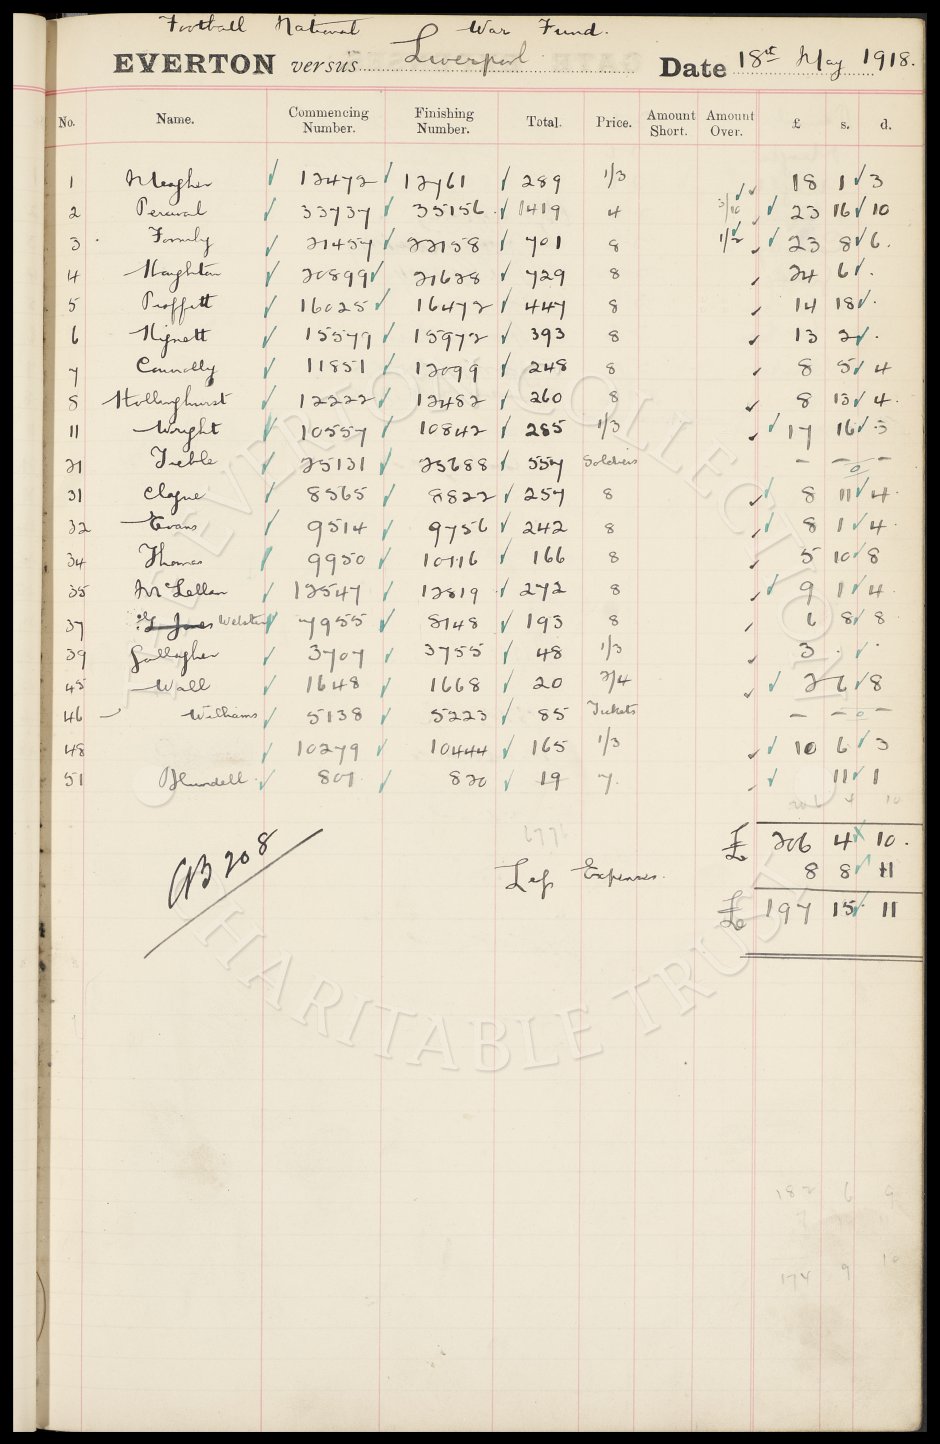 Football National War Fund.
EVERTON versus Liverpool Date 18th May 1918.
No. Name. Commencing Number. Finishing Number. Total. Price. Amount Short. Amount Over. £ s. d.
1 Meagher 12472 12761 289 1/3 18 1 3
2 Percival 33737 35156 1419 4 3/10 23 16 10
3 Formby 21457 22158 701 8 1/2 23 8 6.
4 Houghton 20899 21628 729 8 24 6 .
5 Proffitt 16025 16472 447 8 14 18 .
6 Hignett 15579 15972 393 8 13 2 .
7 Connolly 11851 12099 248 8 8 5 4
8 Hollinghurst 12222 12482 260 8 8 13 4.
11 Wright 10557 10842 285 1/3 17 16 3
21 Treble 25131 25688 557 Soldiers – – 0 –
31 Clague 8565 8822 257 8 8 11 4
32 Evans 9514 9756 242 8 8 1 4
34 Thomas 9950 10116 166 8 5 10 8
35 McLellan 12547 12819 272 8 9 1 4
37 Webster 7955 8148 193 8 6 8 8
39 Gallagher 3707 3755 48 1/3 3 . .
45 Wall 1648 1668 20 2/4 2 6 8
46 Williams 5138 5223 85 Tickets – – 0 –
48 10279 10444 165 1/3 10 6 3
51 Blundell 801 820 19 7. 11 1
4 10
£ 206 4 10.
Less Expenses. 8 8 11
£ 197 15 11
CB 208
182 6 9
174 9 10
THE EVERTON COLLECTION
CHARITABLE TRUST